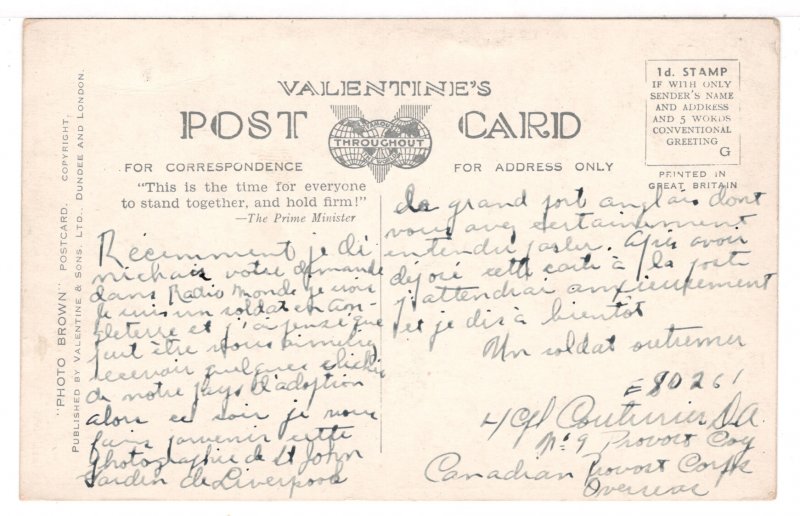 VALENTINE'S
POST CARD
THROUGHOUT
FOR CORRESPONDENCE
FOR ADDRESS ONLY
1d. STAMP
IF WITH ONLY
SENDER'S NAME
AND ADDRESS
AND 5 WORDS
CONVENTIONAL
GREETING
G
PRINTED IN
GREAT BRITAIN
"This is the time for everyone
to stand together, and hold firm!"
—The Prime Minister
"PHOTO BROWN" POSTCARD. COPYRIGHT.
PUBLISHED BY VALENTINE & SONS. LTD., DUNDEE AND LONDON.
Récemment je dé
nichais votre demande
dans Radio Monde je vous
Je suis un soldat en An-
gleterre et j'ai pensé que
peut être vous aimeriez
recevoir quelques clichés
de notre pays d'adoption
alors ce soir je vous
fais parvenir cette
photographie de St John
Garden de Liverpool
de grand port anglais dont
vous avez certainement
entendu parler. Après avoir
déposé cette carte à la poste
j'attendrai anxieusement
et je dis à bientôt
Un soldat outremer
E 80261
L/Cpl Couturier D.A.
No 9 Provost Coy
Canadian Provost Corps
Overseas